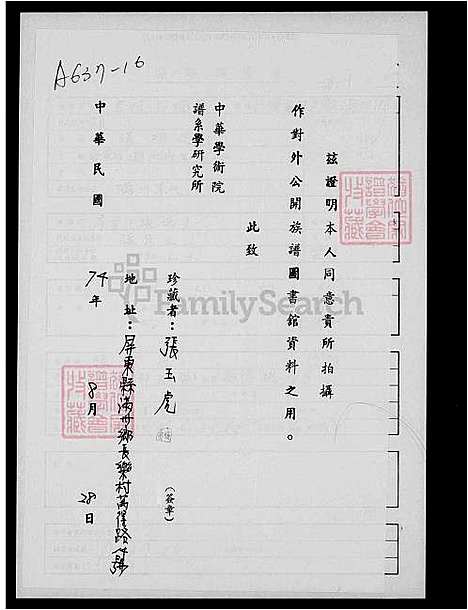 A637-16
茲證明本人同意貴所拍攝
作對外公開族譜圖書館資料之用。
此致
中華學術院
譜系學研究所
珍藏者：張玉虎
（簽章）
地址：屏東縣滿州鄉長樂村萬里路
中華民國
74年 8月 28日
FamilySearch